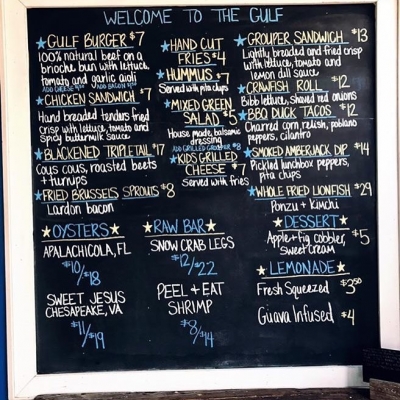 WELCOME TO THE GULF
GULF BURGER $7
100% natural beef on a
brioche bun with lettuce,
tomato and garlic aioli
ADD CHEESE $1 ADD BACON $2
CHICKEN SANDWICH $7
Hand breaded tenders fried
crisp with lettuce, tomato and
spicy buttermilk sauce
BLACKENED TRIPLETAIL $17
Cous cous, roasted beets
+ turnips
FRIED BRUSSELS SPROUTS $8
Lardon bacon
HAND CUT
FRIES $4
HUMMUS $7
Served with pita chips
MIXED GREEN
SALAD $5
House made, balsamic
dressing
ADD GRILLED GROUPER $8
KIDS GRILLED
CHEESE $7
Served with fries
GROUPER SANDWICH $13
Lightly breaded and fried crisp
with lettuce, tomato and
lemon dill sauce
CRAWFISH ROLL $12
Bibb lettuce, shaved red onions
BBQ DUCK TACOS $12
Charred corn, relish, poblano
peppers, cilantro
SMOKED AMBERJACK DIP $14
Pickled lunchbox peppers,
pita chips
WHOLE FRIED LIONFISH $29
Ponzu + Kimchi
OYSTERS
APALACHICOLA, FL
$10/$18
SWEET JESUS
CHESAPEAKE, VA
$11/$19
RAW BAR
SNOW CRAB LEGS
$12/22
PEEL + EAT
SHRIMP
$8/$14
DESSERT
Apple + fig cobbler, $5
sweet cream
LEMONADE
Fresh Squeezed $3.50
Guava Infused $4